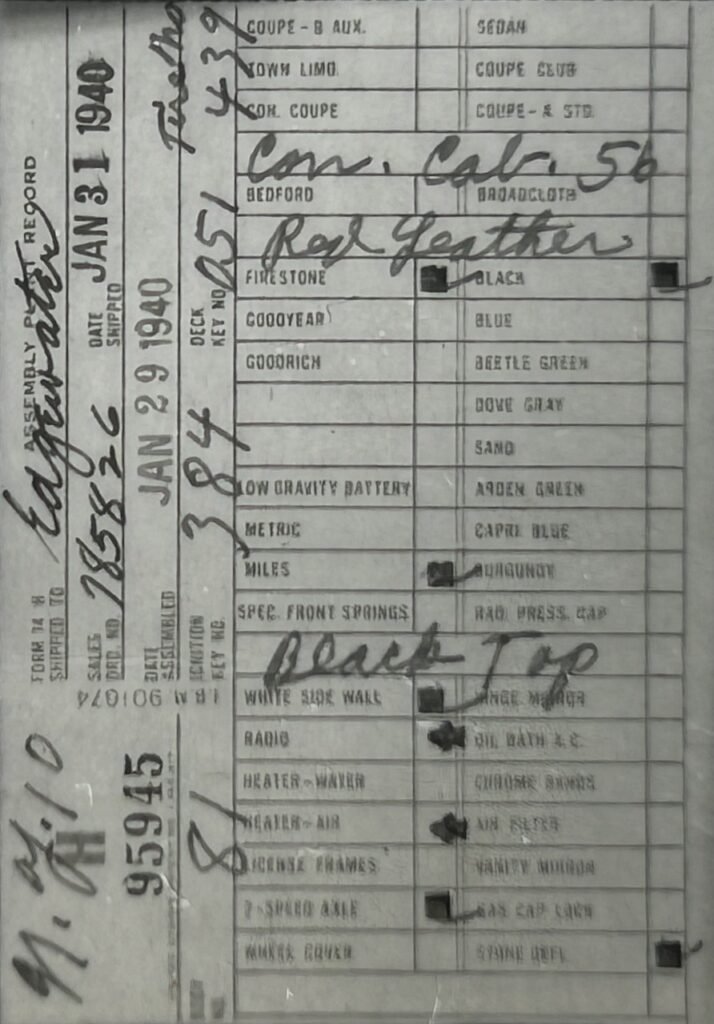 ASSEMBLY PLANT RECORD
FORM 14 M
SHIPPED TO Edgewater
SALES ORD. NO. 785826 DATE SHIPPED JAN 31 1940
DATE ASSEMBLED JAN 29 1940
IGNITION KEY NO. 384 DECK KEY NO. D51 439
IBM 901674
N.Y. 10
H
95945
81
COUPE - B AUX. SEDAN
TOWN LIMO. COUPE CLUB
CON. COUPE COUPE - A STD.
Con. Cab. 56
BEDFORD BROADCLOTH
Red Leather
FIRESTONE BLACK
GOODYEAR BLUE
GOODRICH BEETLE GREEN
DOVE GRAY
SAND
LOW GRAVITY BATTERY ARDEN GREEN
METRIC CAPRI BLUE
MILES BURGUNDY
SPEC. FRONT SPRINGS RAD. PRESS. CAP
Black Top
WHITE SIDE WALL HINGE MIRROR
RADIO OIL BATH A.C.
HEATER-WATER CHROME BANDS
HEATER-AIR AIR FILTER
LICENSE FRAMES VANITY MIRROR
2-SPEED AXLE GAS CAP LOCK
WHEEL COVER STONE DEFL.